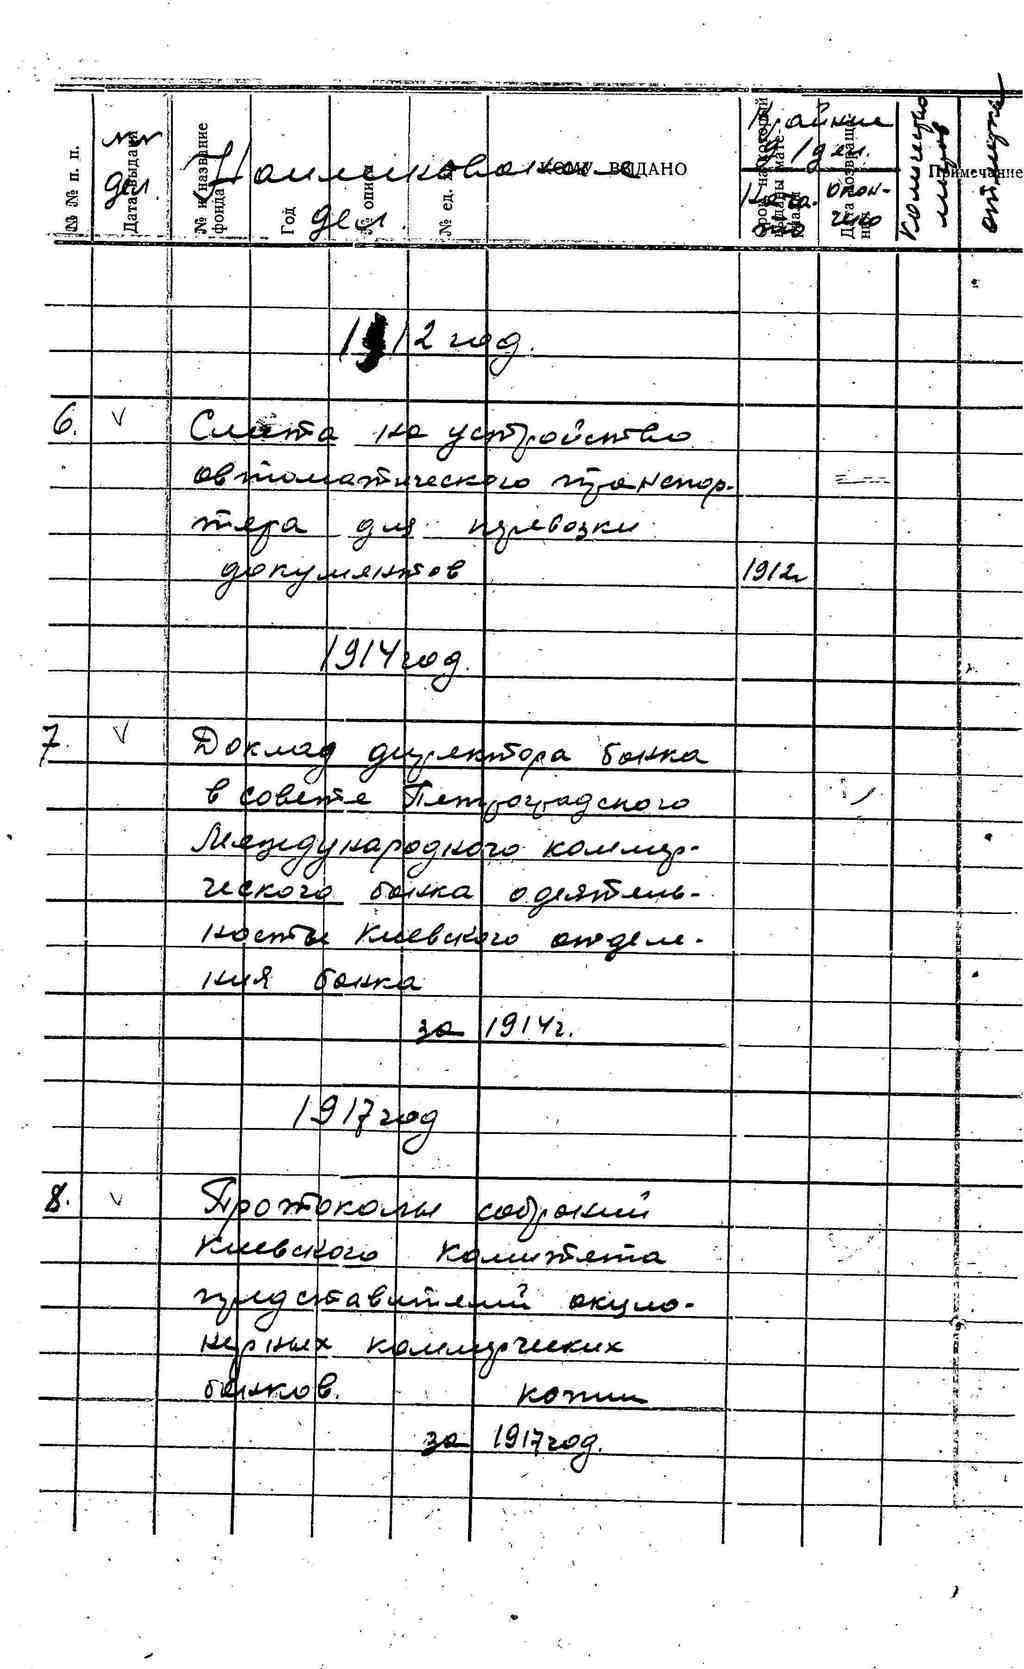 №№ п. п.
Дата выдачи
№ и название фонда
Год
№ описи
№ ед.
КОМУ ВЫДАНО
Примечание
дел
Наименование
дел
Крайние
Количество
листов
отметка
1912 год.
6. V Смета на устройство
автоматического транспор-
тера для перевозки
документов 1912г
1914 год.
7. V Доклад директора банка
в совете Петроградского
Международного коммер-
ческого банка о деятель-
ности Киевского отделе-
ния банка
за 1914г.
1917 год
8. V Протоколы собраний
Киевского Комитета
представителей акцио-
нерных коммерческих
банков. копии
за 1917 год.